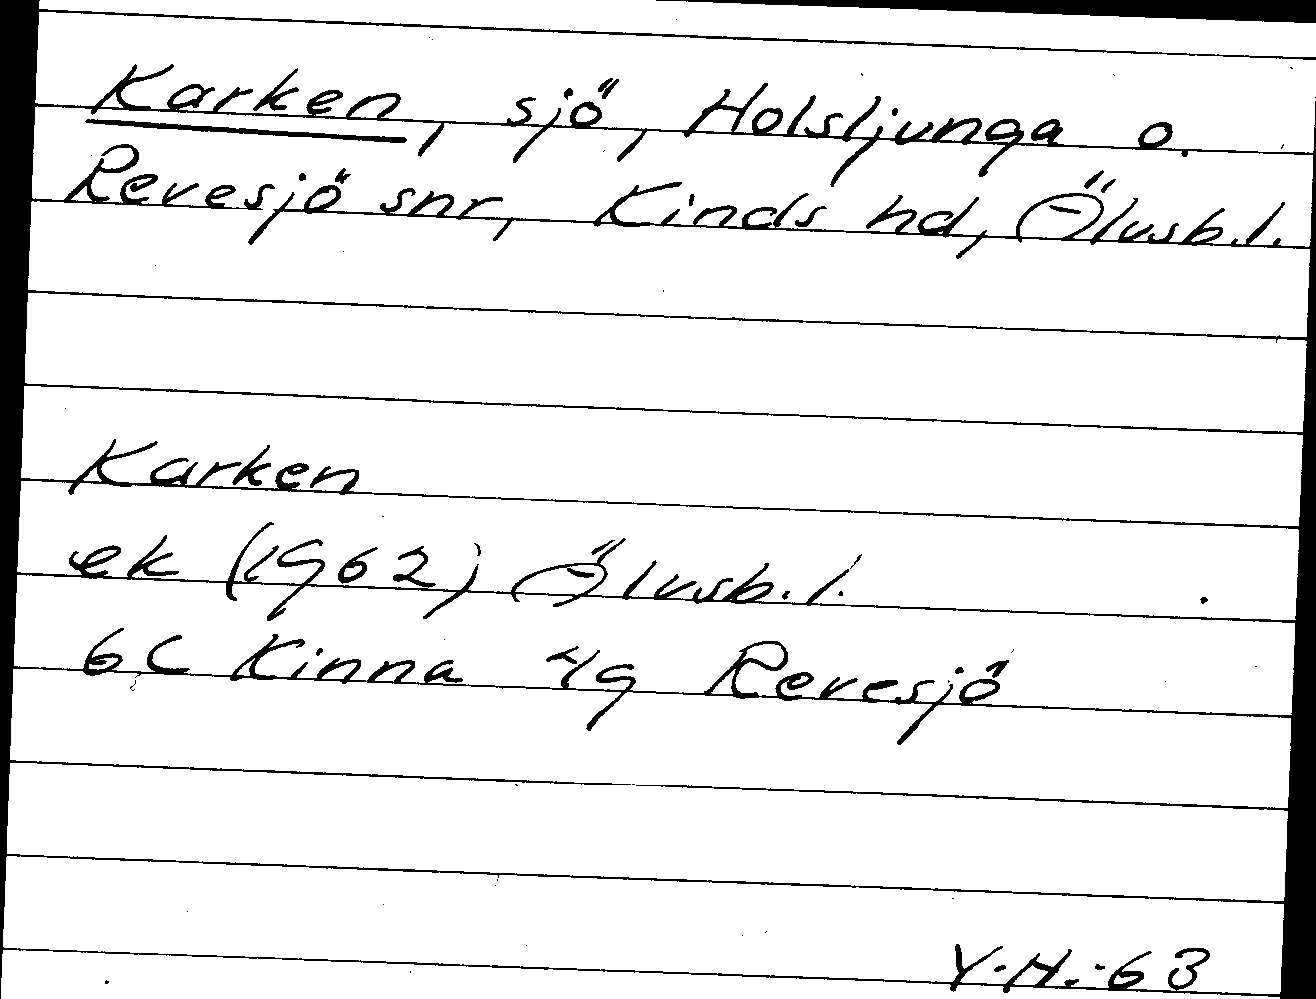 Karken, sjö, Holsljunga o.
Revesjö snr, Kinds hd, Älvsb.l.
Karken
ek (1962) Älvsb.l.
6C Kinna 4g Revesjö
Y.H.-63